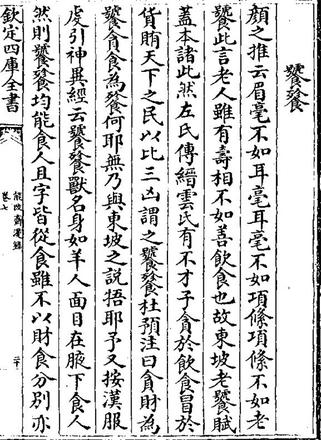 饕餮
顔之推云眉毫不如耳毫耳毫不如項絛項絛不如老
饕此言老人雖有壽相不如善飲食也故東坡老饕賦
蓋本諸此然左氏傳縉雲氏有不才子貪於飲食冒於
貨賄天下之民以比三凶謂之饕餮杜預注曰貪財為
饕貪食為餮何耶無乃與東坡之說捂耶予又按漢服
䖍引神異經云饕餮獸名身如羊人面目在腋下食人
然則饕餮均能食人且字皆從食雖不以財食分別亦
欽定四庫全書
能改齋漫録
卷七
二十